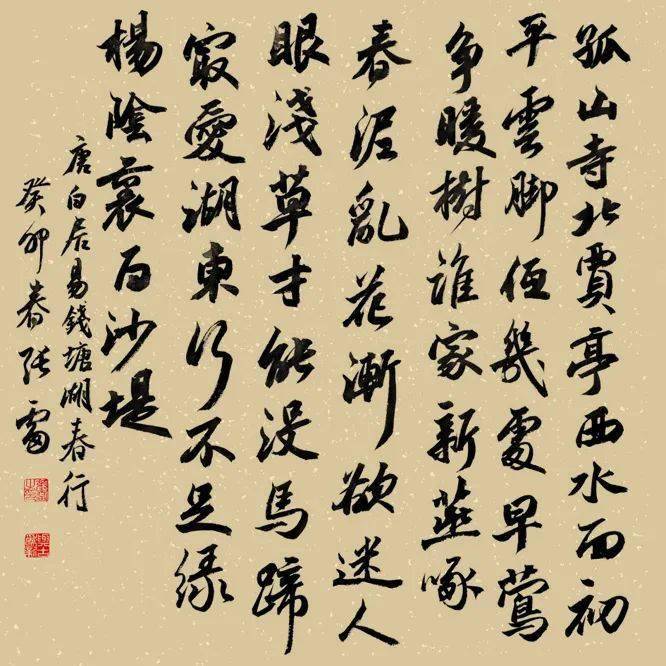 孤山寺北賈亭西水面初
平雲脚低幾處早鶯
争暖樹誰家新燕啄
春泥亂花漸欲迷人
眼淺草才能没馬蹄
最愛湖東行不足緑
楊陰裏白沙堤
唐白居易錢塘湖春行
癸卯春張雷